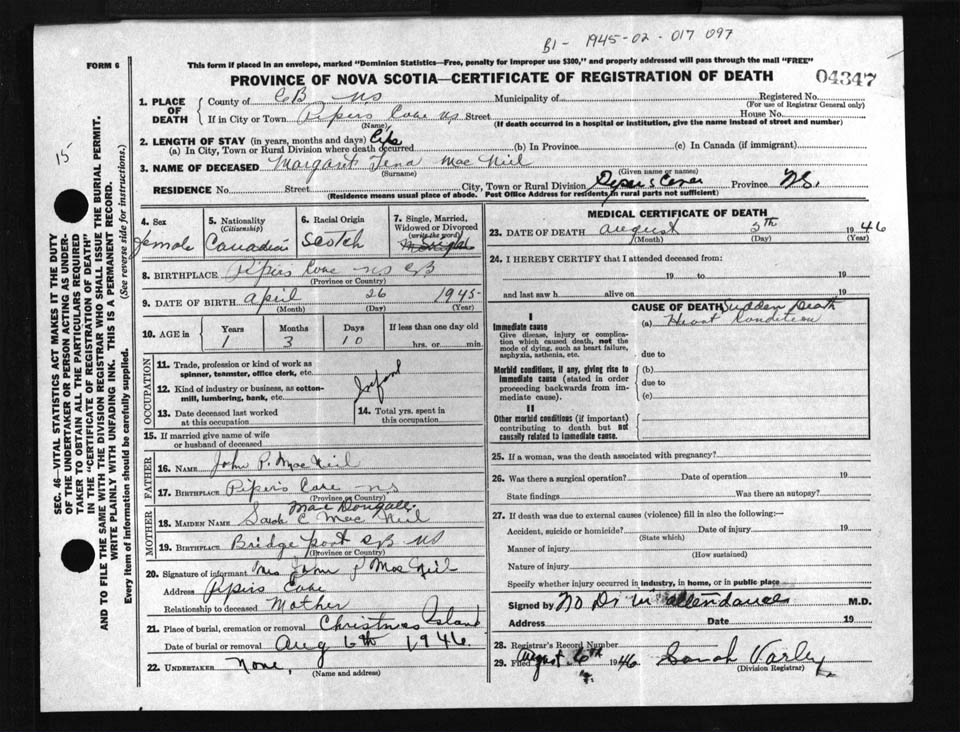 B1- 1945-02-017097
FORM 6
This form if placed in an envelope, marked "Dominion Statistics—Free, penalty for improper use $300," and properly addressed will pass through the mail "FREE"
PROVINCE OF NOVA SCOTIA—CERTIFICATE OF REGISTRATION OF DEATH
04347
15
SEC. 46—VITAL STATISTICS ACT MAKES IT THE DUTY
OF THE UNDERTAKER OR PERSON ACTING AS UNDER-
TAKER TO OBTAIN ALL THE PARTICULARS REQUIRED
IN THE "CERTIFICATE OF REGISTRATION OF DEATH"
AND TO FILE THE SAME WITH THE DIVISION REGISTRAR WHO SHALL ISSUE THE BURIAL PERMIT.
WRITE PLAINLY WITH UNFADING INK. THIS IS A PERMANENT RECORD.
Every item of information should be carefully supplied. (See reverse side for instructions.)
1. PLACE OF DEATH
County of CB NS Municipality of Registered No.
(For use of Registrar General only)
If in City or Town Pipers Cove NS Street House No.
(Name) (If death occurred in a hospital or institution, give the name instead of street and number)
2. LENGTH OF STAY (in years, months and days) Life
(a) In City, Town or Rural Division where death occurred (b) In Province (c) In Canada (if immigrant)
3. NAME OF DECEASED Margaret Tena Mac Neil
(Surname) (Given name or names)
RESIDENCE No. Street City, Town or Rural Division Pipers Cove Province NS.
(Residence means usual place of abode. Post Office Address for residents in rural parts not sufficient)
4. Sex female
5. Nationality (Citizenship) Canadian
6. Racial Origin Scotch
7. Single, Married, Widowed or Divorced (write the word) Single
8. BIRTHPLACE Pipers Cove NS CB
(Province or Country)
9. DATE OF BIRTH April 26 1945
(Month) (Day) (Year)
10. AGE in Years Months Days If less than one day old
1 3 10 hrs. or min.
OCCUPATION
11. Trade, profession or kind of work as spinner, teamster, office clerk, etc.
12. Kind of industry or business, as cotton-mill, lumbering, bank, etc.
Infant
13. Date deceased last worked at this occupation
14. Total yrs. spent in this occupation
15. If married give name of wife or husband of deceased
FATHER
16. NAME John P. Mac Neil
17. BIRTHPLACE Pipers Cove NS
(Province or Country)
MOTHER
Mac Dougall
18. MAIDEN NAME Sarah C Mac Neil
19. BIRTHPLACE Bridgeport CB NS
(Province or Country)
20. Signature of informant Mrs John P Mac Neil
Address Pipers Cove
Relationship to deceased Mother
21. Place of burial, cremation or removal Christmas Island
Date of burial or removal Aug 6th 1946.
22. UNDERTAKER None,
(Name and address)
MEDICAL CERTIFICATE OF DEATH
23. DATE OF DEATH August 5th 1946
(Month) (Day) (Year)
24. I HEREBY CERTIFY that I attended deceased from:
19 to 19
and last saw h alive on 19
CAUSE OF DEATH Sudden Death
I
Immediate cause (a) Heart Condition
Give disease, injury or complication which caused death, not the mode of dying, such as heart failure, asphyxia, asthenia, etc.
due to
Morbid conditions, if any, giving rise to immediate cause (stated in order proceeding backwards from immediate cause).
(b)
due to
(c)
II
Other morbid conditions (if important) contributing to death but not causally related to immediate cause.
25. If a woman, was the death associated with pregnancy?
26. Was there a surgical operation? Date of operation 19
State findings Was there an autopsy?
27. If death was due to external causes (violence) fill in also the following:—
Accident, suicide or homicide? Date of injury 19
(State which)
Manner of injury
(How sustained)
Nature of injury
Specify whether injury occurred in industry, in home, or in public place
Signed by No Dr in attendance M.D.
Address Date 19
28. Registrar's Record Number
29. Filed August 6th 1946 Sarah Varley
(Division Registrar)